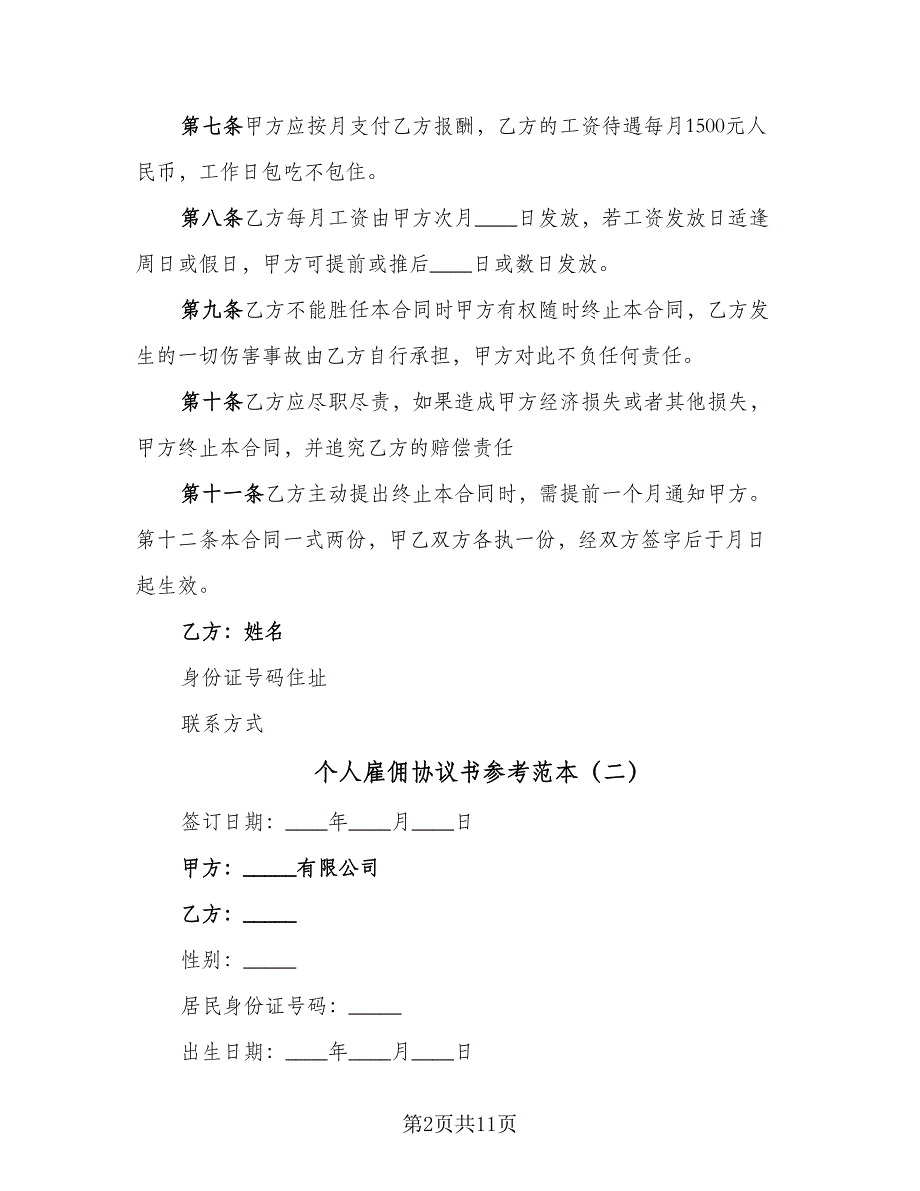 第七条甲方应按月支付乙方报酬，乙方的工资待遇每月1500元人
民币，工作日包吃不包住。
第八条乙方每月工资由甲方次月____日发放，若工资发放日适逢
周日或假日，甲方可提前或推后____日或数日发放。
第九条乙方不能胜任本合同时甲方有权随时终止本合同，乙方发
生的一切伤害事故由乙方自行承担，甲方对此不负任何责任。
第十条乙方应尽职尽责，如果造成甲方经济损失或者其他损失，
甲方终止本合同，并追究乙方的赔偿责任
第十一条乙方主动提出终止本合同时，需提前一个月通知甲方。
第十二条本合同一式两份，甲乙双方各执一份，经双方签字后于月日
起生效。
乙方：姓名
身份证号码住址
联系方式
个人雇佣协议书参考范本（二）
签订日期：____年____月____日
甲方：_____有限公司
乙方：_____
性别：_____
居民身份证号码：_____
出生日期：____年____月____日
第2页共11页